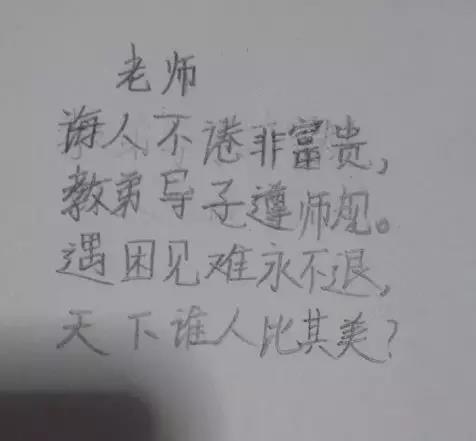 老师
诲人不倦非富贵，
教弟导子遵师规。
遇困见难永不退，
天下谁人比其美？